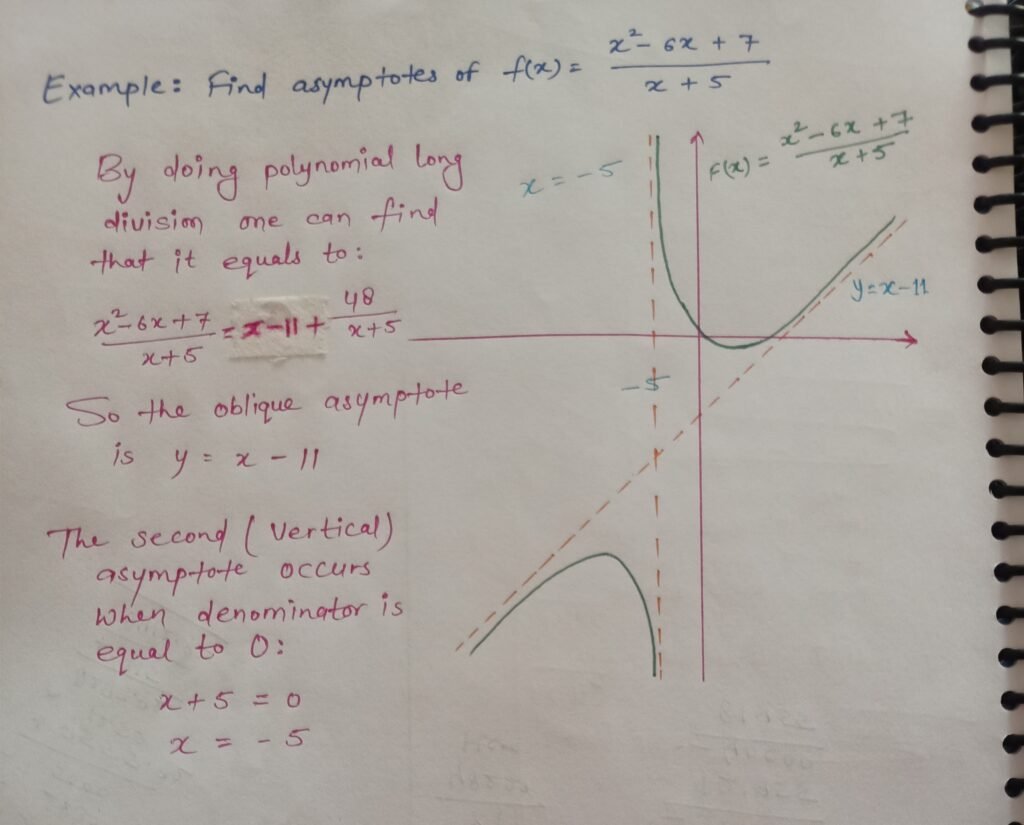 Example: Find asymptotes of f(x) = (x² - 6x + 7)/(x + 5)
By doing polynomial long
division one can find
that it equals to:
(x² - 6x + 7)/(x + 5) = x - 11 + 48/(x + 5)
So the oblique asymptote
is y = x - 11
The second (Vertical)
asymptote occurs
when denominator is
equal to 0:
x + 5 = 0
x = - 5
x = - 5
f(x) = (x² - 6x + 7)/(x + 5)
y = x - 11
- 5